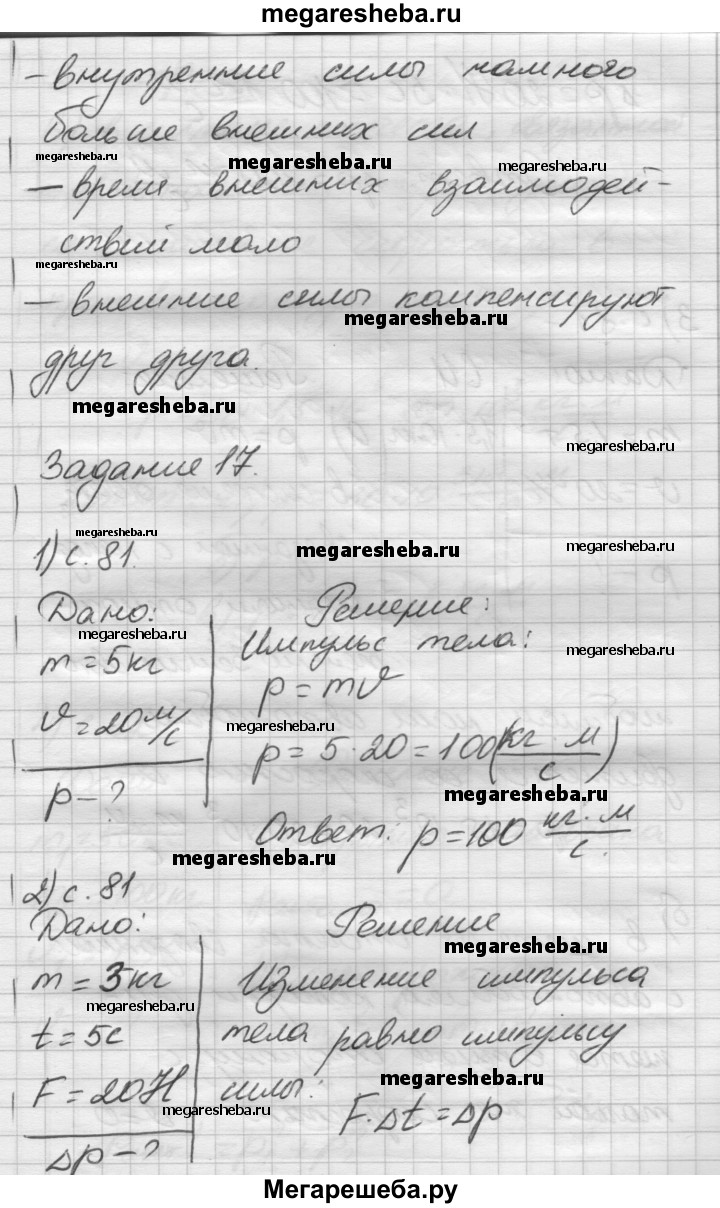 megaresheba.ru
- внутренние силы намного
больше внешних сил
megaresheba.ru megaresheba.ru megaresheba.ru
- время внешних взаимодей-
ствий мало
megaresheba.ru
- внешние силы компенсируют
megaresheba.ru
друг друга.
megaresheba.ru
megaresheba.ru
Задание 17.
megaresheba.ru megaresheba.ru megaresheba.ru
1) с. 81.
Дано: Решение:
megaresheba.ru megaresheba.ru
m = 5 кг Импульс тела:
p = mϑ
ϑ = 20 м/с megaresheba.ru
p = 5 · 20 = 100 (кг · м / с)
p - ? megaresheba.ru
Ответ: p = 100 кг · м / с.
megaresheba.ru
2) с. 81
Дано: Решение
megaresheba.ru
m = 3 кг Изменение импульса
megaresheba.ru
t = 5 с тела равно импульсу
F = 20 Н силы:
megaresheba.ru megaresheba.ru
F · Δt = Δp
Δp - ?
Мегарешеба.ру